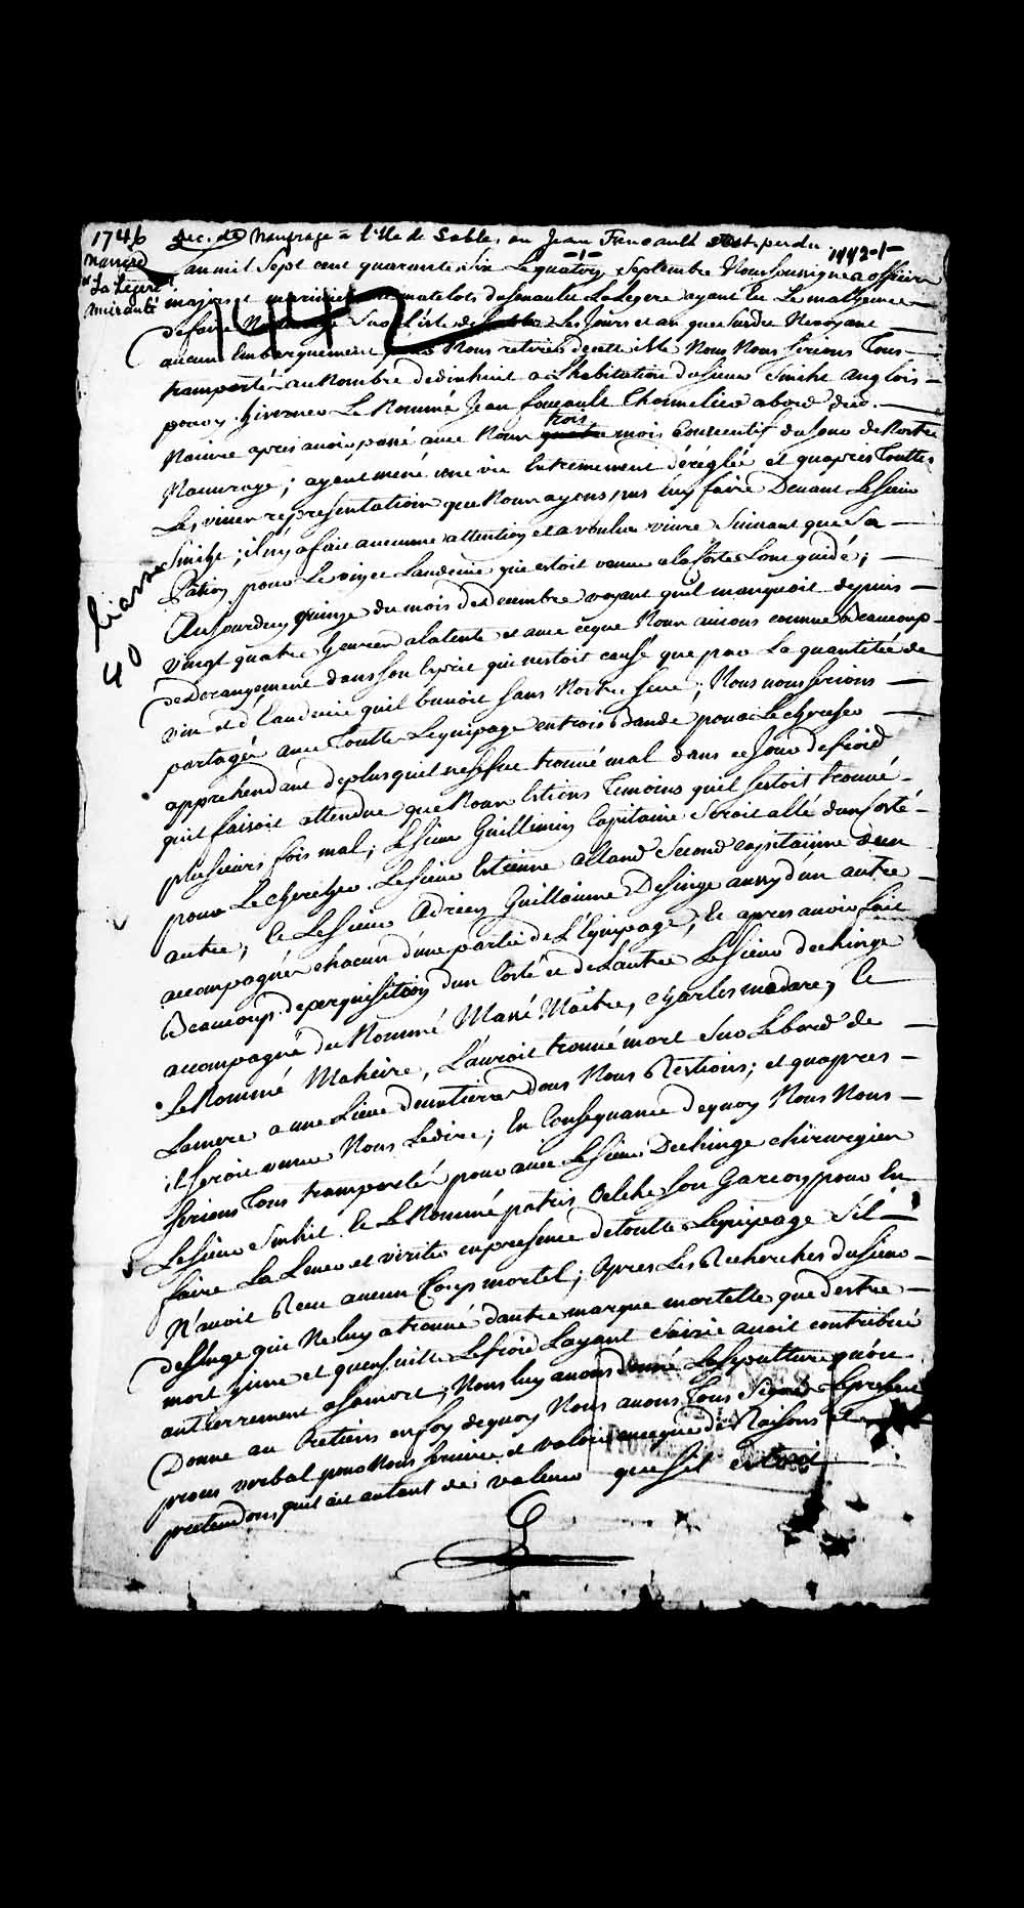 1746
Dec. de Naufrage à l'Ile de Sable, ou Jean Foucault s'est perdu.
1442-1
-1-
navire
"La Légère"
1442
Lan mil Sept cent quarante Six Le quatorze Septembre Nous Soussignes officiers
majors et mariniers matelots du senault La Legere ayant Eu Le malheur
de faire Naufrage Sur L'isle de Sable Les Jours et an que Susdit Ne voyant
aucun Embarquement pour Nous retirer de cette isle Nous Nous Serions Tous
transportés au Nombre de dixhuit a L'habitation du Sieur Smith anglois
pour y hiverner Le Nommé Jean foucault Thonnelier abord dud.
trois
Navire apres avoir passé avec Nous quatre mois Consecutif du Jour de Nostre
Naufrage; ayant mené une vie Extremement déréglée et quapres Touttes
Les vives représentations que Nous ayons pus luy faire Devant Le Sieur
Smith; il n'y a fait aucunne attention et a voulu vivre Suivant que Sa
Pation pour Le vin et Laudevie qui estoit venue a la Coste Lont guidé;
Liasse
40
Aujourduy quinze du mois de decembre voyant quil manquoit depuis
vingt quatre heures a latente et avec ce que Nous avions connue Beaucoup
de derangement dans son Esprit qui nestoit causé que par La quantitée de
vin et d'Laudevie quil buvoit Sans Nostre Sceu; Nous nous Serions
partagés avec Toutte Lequipage en trois Bande pour Le chercher
apprehendant de plus quil ne se fut trouvé mal dans ce Jour de froid
quil faisoit attendue que Nous Estions Temoins quil Sestoit trouvé
plusieurs fois mal; Le Sieur Guillimin Capitaine Seroit allé dun Costé
pour Le chercher Le Sieur Estienne allard Second capitainne d'un
autre; Et Le Sieur Adrien Guillaume Deshinge aussy d'un autre
accompagnés chacun d'une partie de L'Equipage; Et apres avoir fait
Beaucoup de perquisition dun Costé et de Lautre Le Sieur dechinge
accompagné du Nommé Mané Maitre, Charles madare, Et
Le Nommé Maheire, Lauroit trouvé mort Sur Le bord de
Lamere a une Lieue den tierre dous Nous Restions; et quapres
il Seroit venue Nous Le dire; En Consequance de quoy Nous Nous
Serions Tous transportés pour avec Le Sieur Dechinge chirurgien
Le Sieur Smhit Et Le Nommé patris Son Garcon pour En
faire La Levée et visitte en presence de toutte Lequipage Sil
N'avoit Receu aucun Coup mortel; Apres Les Recherches du Sieur
deshinge qui Ne luy a trouvé dautre marque mortelle que destre
mort yvre et quensuitte Le froid Layant Saisie avoit contribué
antierrement a Sa mort; Nous luy avons donné La Sepulture quon
Donne au Cretiens en foy de quoy Nous avons Tous Signé Le present
proces verbal pour Nous Servire et valoir ence que de Raisons Et
pretendons quil ait autant de valeur que Sil Estoit